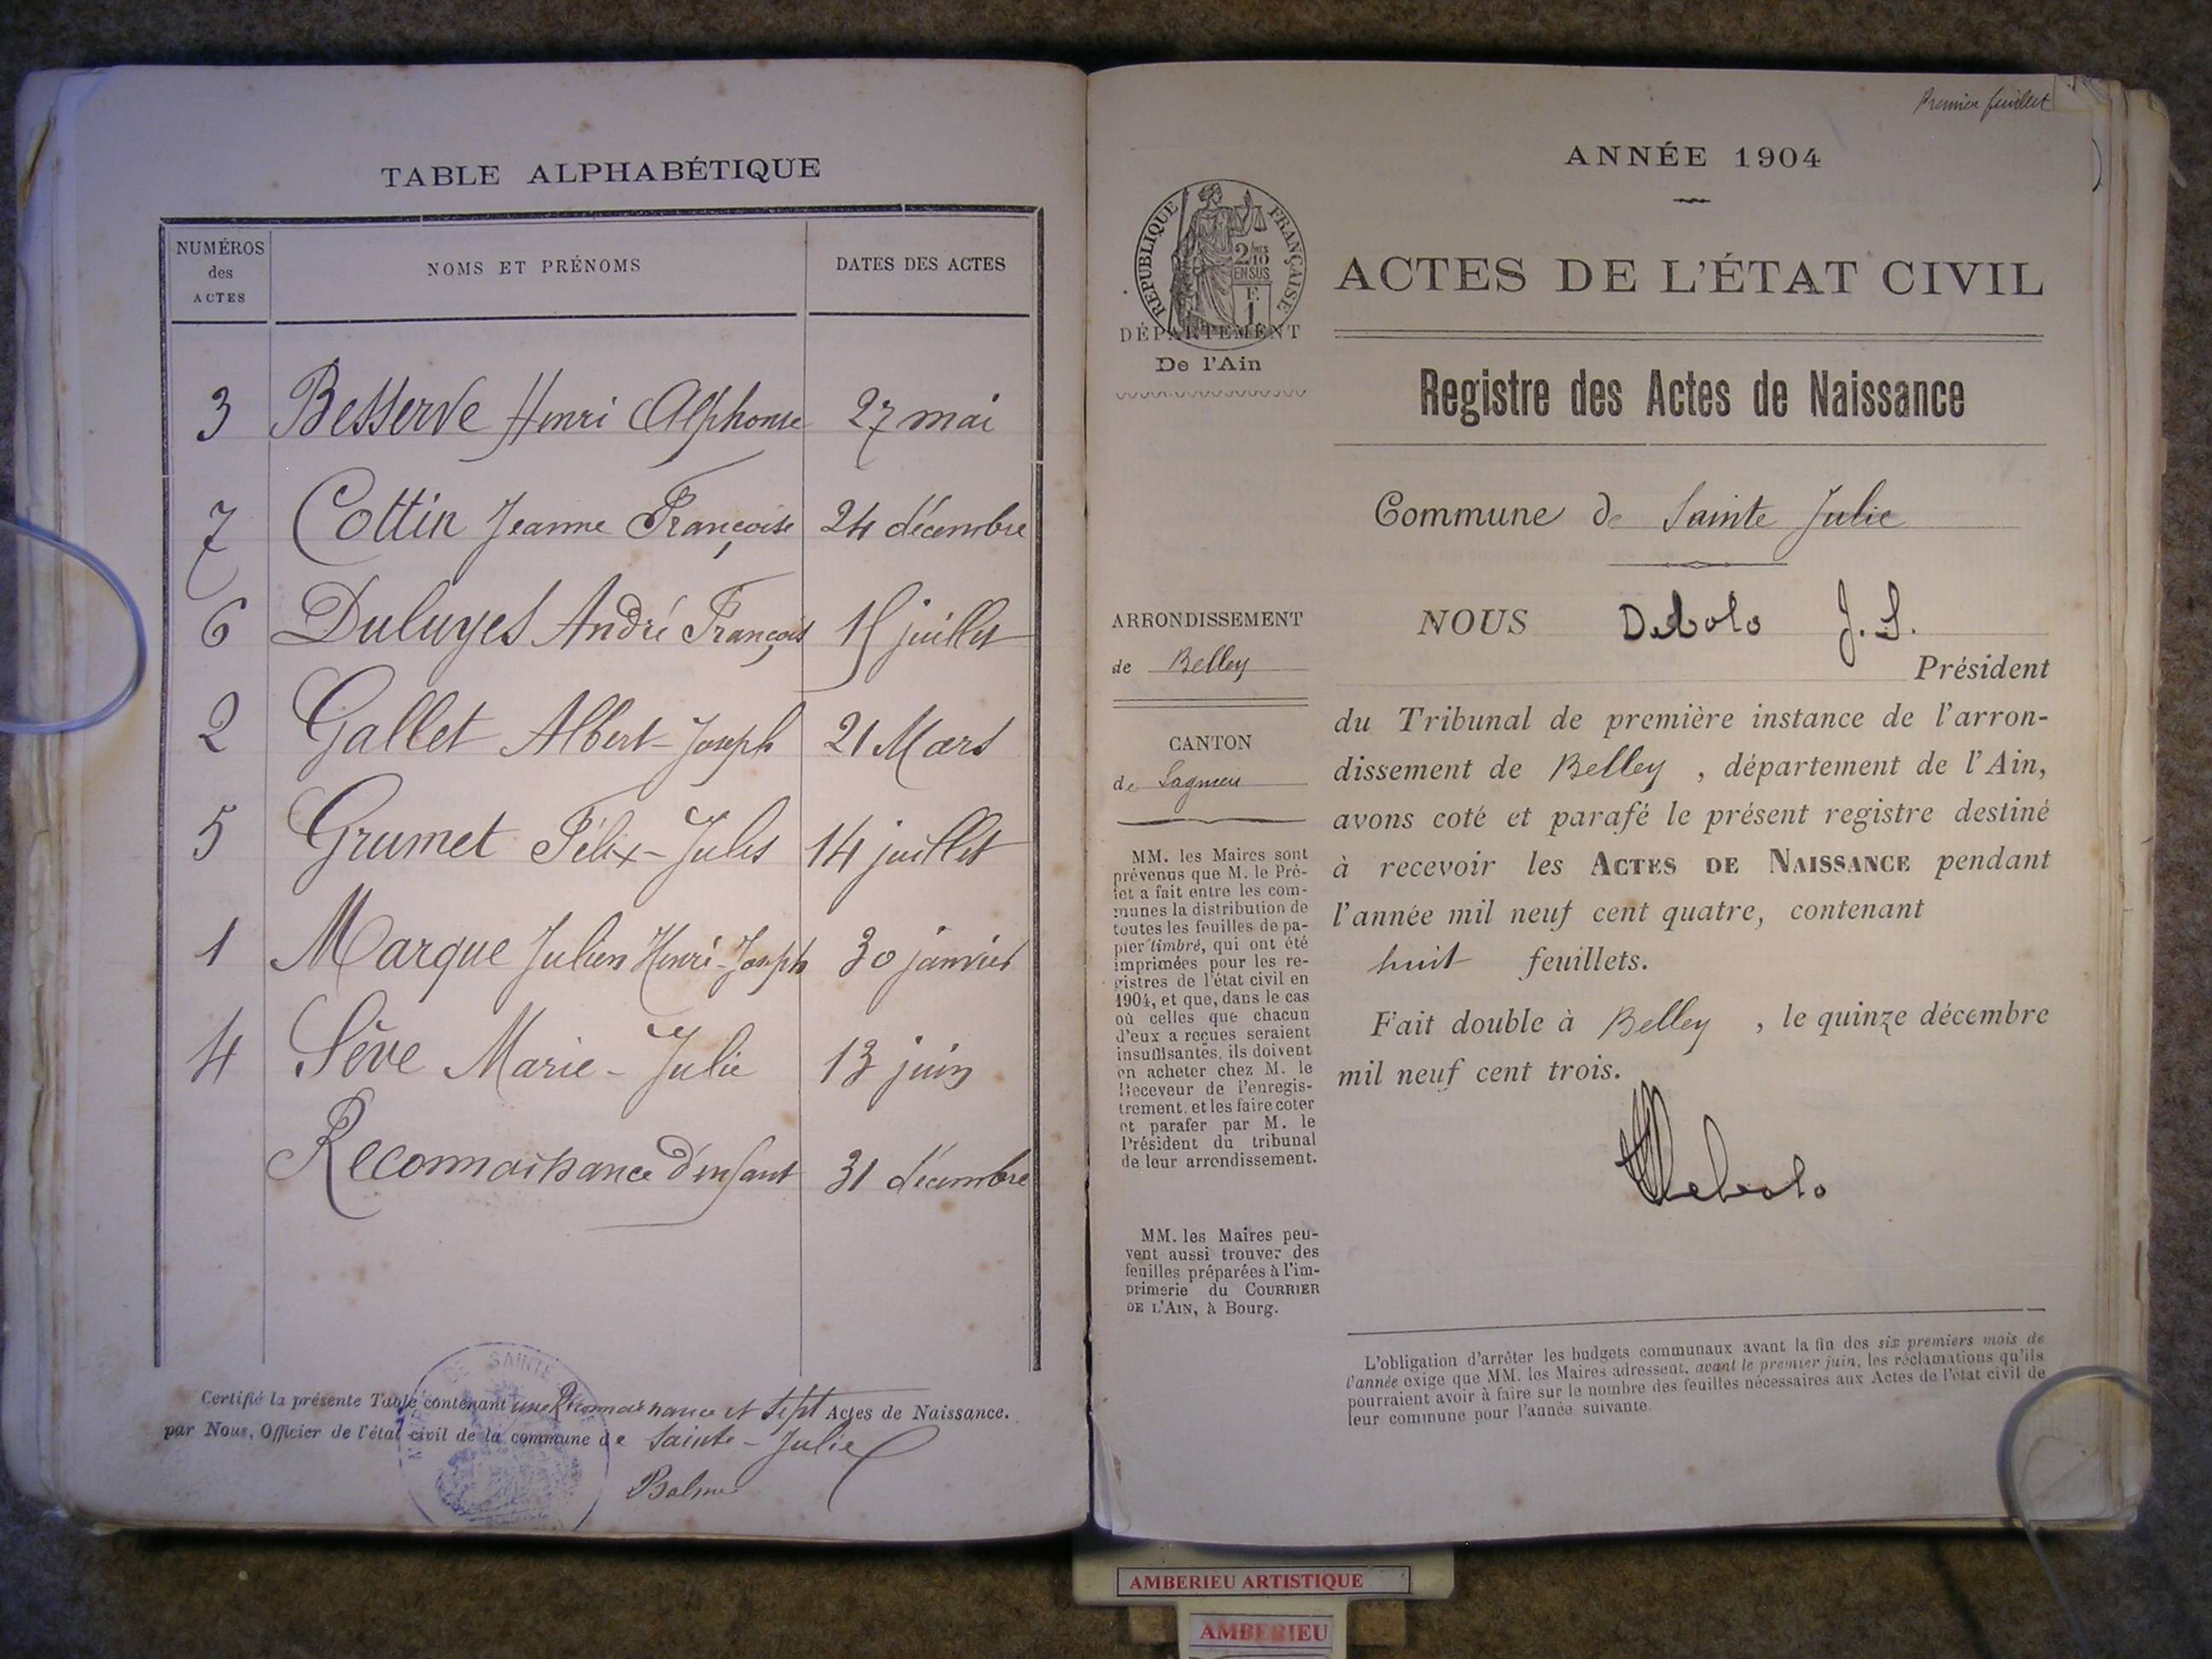 TABLE ALPHABÉTIQUE
NUMÉROS
des
ACTES
NOMS ET PRÉNOMS
DATES DES ACTES
3 Besserve Henri Alphonse 27 mai
7 Cottin Jeanne Françoise 24 décembre
6 Duluyes André François 15 juillet
2 Gallet Albert-Joseph 21 Mars
5 Grumet Félix-Jules 14 juillet
1 Marque Julien Henri-Joseph 30 janvier
4 Sève Marie-Julie 13 juin
Reconnaissance d'enfant 31 décembre
Certifié la présente Table contenant une Reconnaissance et sept Actes de Naissance.
par Nous, Officier de l'état civil de la commune de Sainte-Julie
SAINTE
Premier feuillet
ANNÉE 1904
RÉPUBLIQUE FRANÇAISE
2/10
EN SUS
F.
1
DÉPARTEMENT
De l'Ain
ACTES DE L'ÉTAT CIVIL
Registre des Actes de Naissance
Commune de Sainte Julie
ARRONDISSEMENT
de Belley
CANTON
de Lagnieu
MM. les Maires sont
prévenus que M. le Pré-
fet a fait entre les com-
munes la distribution de
toutes les feuilles de pa-
pier timbré, qui ont été
imprimées pour les re-
gistres de l'état civil en
1904, et que, dans le cas
où celles que chacun
d'eux a reçues seraient
insuffisantes, ils doivent
en acheter chez M. le
Receveur de l'enregis-
trement, et les faire coter
et parafer par M. le
Président du tribunal
de leur arrondissement.
MM. les Maires peu-
vent aussi trouver des
feuilles préparées à l'im-
primerie du COURRIER
DE L'AIN, à Bourg.
NOUS J. S.
Président
du Tribunal de première instance de l'arron-
dissement de Belley, département de l'Ain,
avons coté et parafé le présent registre destiné
à recevoir les ACTES DE NAISSANCE pendant
l'année mil neuf cent quatre, contenant
huit feuillets.
Fait double à Belley, le quinze décembre
mil neuf cent trois.
L'obligation d'arrêter les budgets communaux avant la fin des six premiers mois de
l'année exige que MM. les Maires adressent, avant le premier juin, les réclamations qu'ils
pourraient avoir à faire sur le nombre des feuilles nécessaires aux Actes de l'état civil de
leur commune pour l'année suivante.
AMBERIEU ARTISTIQUE
AMBERIEU